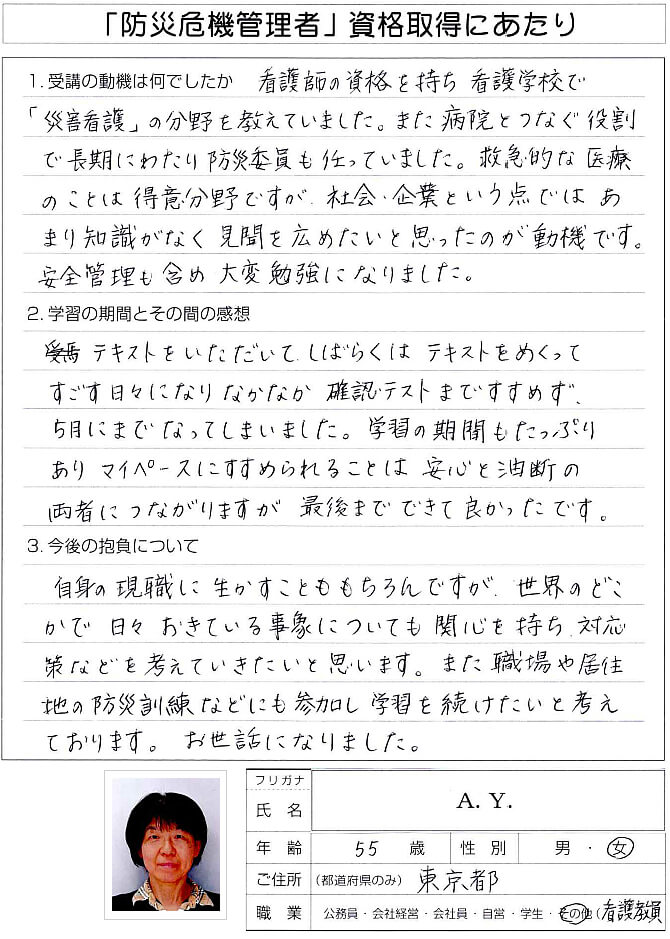 「防災危機管理者」資格取得にあたり
1. 受講の動機は何でしたか 看護師の資格を持ち 看護学校で
「災害看護」の分野を教えていました。また病院とつなぐ役割
で長期にわたり防災委員も任っていました。救急的な医療
のことは得意分野ですが、社会・企業という点では あ
まり知識がなく 見聞を広めたいと思ったのが動機です。
安全管理も含め 大変勉強になりました。
2. 学習の期間とその間の感想
テキストをいただいて、しばらくは テキストをめくって
すごす日々になり なかなか 確認テストまですすめず、
5月にまでなってしまいました。学習の期間もたっぷり
あり マイペースにすすめられることは 安心と油断の
両者につながりますが 最後までできて良かったです。
3. 今後の抱負について
自身の現職に生かすことももちろんですが、世界のどこ
かで 日々 おきている事象についても 関心を持ち、対応
策などを考えていきたいと思います。また職場や居住
地の防災訓練などにも参加し 学習を続けたいと考え
ております。 お世話になりました。
フリガナ
氏名 A. Y.
年齢 55 歳 性別 男・女
ご住所 (都道府県のみ) 東京都
職業 公務員・会社経営・会社員・自営・学生・その他(看護教員